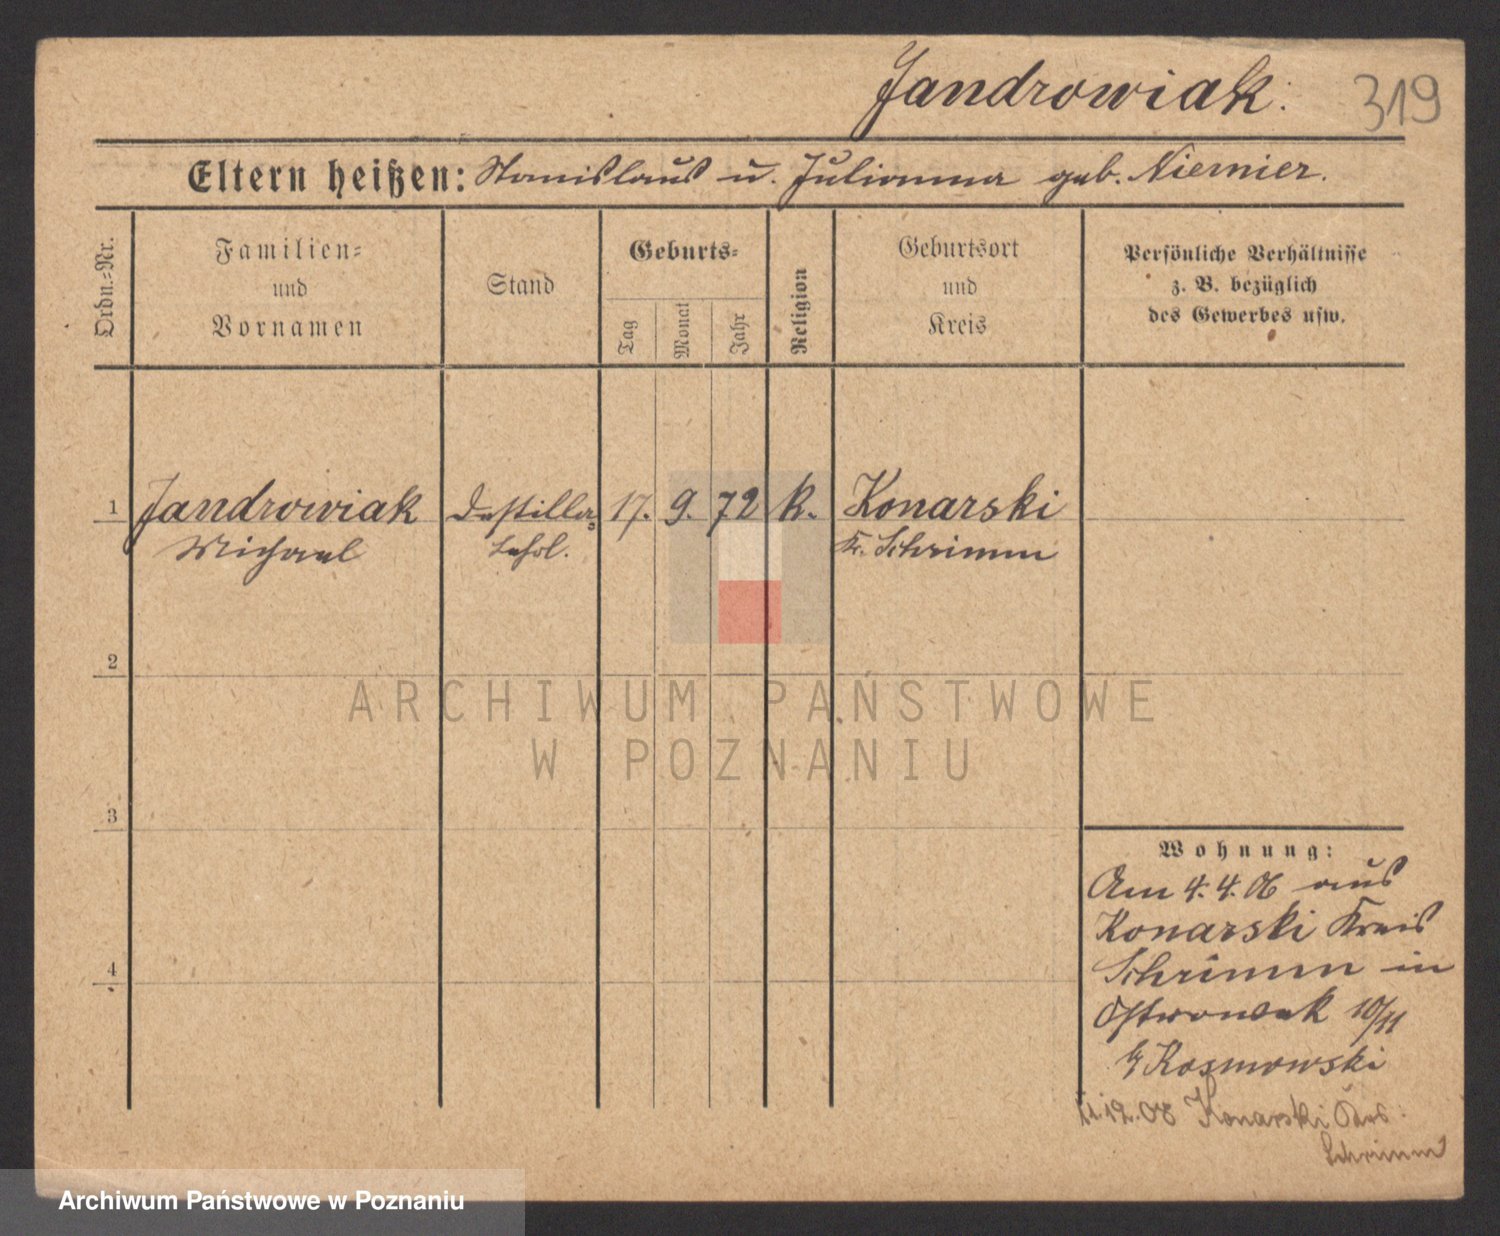 Jandrowiak.
319
Eltern heißen: Stanislaus u. Julianna geb. Niemier.
Ordn.=Nr.
Familien=
und
Vornamen
Stand
Geburts=
Tag
Monat
Jahr
Religion
Geburtsort
und
Kreis
Persönliche Verhältnisse
z. B. bezüglich
des Gewerbes usw.
1 Jandrowiak Destilla= 17. 9. 72 k. Konarski
Michael Kr. Schrimm
2
3
4
Wohnung:
Am 4.4.06 aus
Konarski Kreis
Schrimm in
Ostrowek 10/11
Kosmowski
21.12.08 Konarski
Schrimm
ARCHIWUM PAŃSTWOWE
W POZNANIU
Archiwum Państwowe w Poznaniu